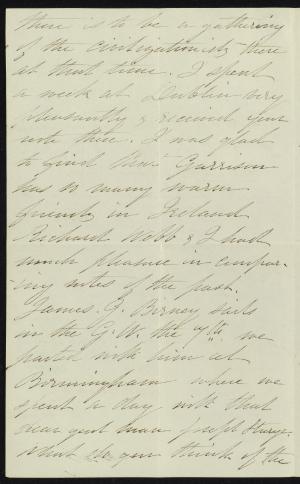 there is to be a gathering
of the civilizationists there
at that time. I spent
a week at Dublin very
pleasantly & received your
note there. I was glad
to find that Garrison
has so many warm
friends in Ireland
Richard Webb & I had
much pleasure in compar-
ing notes of the past.
James G. Birney sails
in the G. W. the we
parted with him at
Birmingham where we
spent a day with that
dear good man Joseph Sturge.
What do you think of the